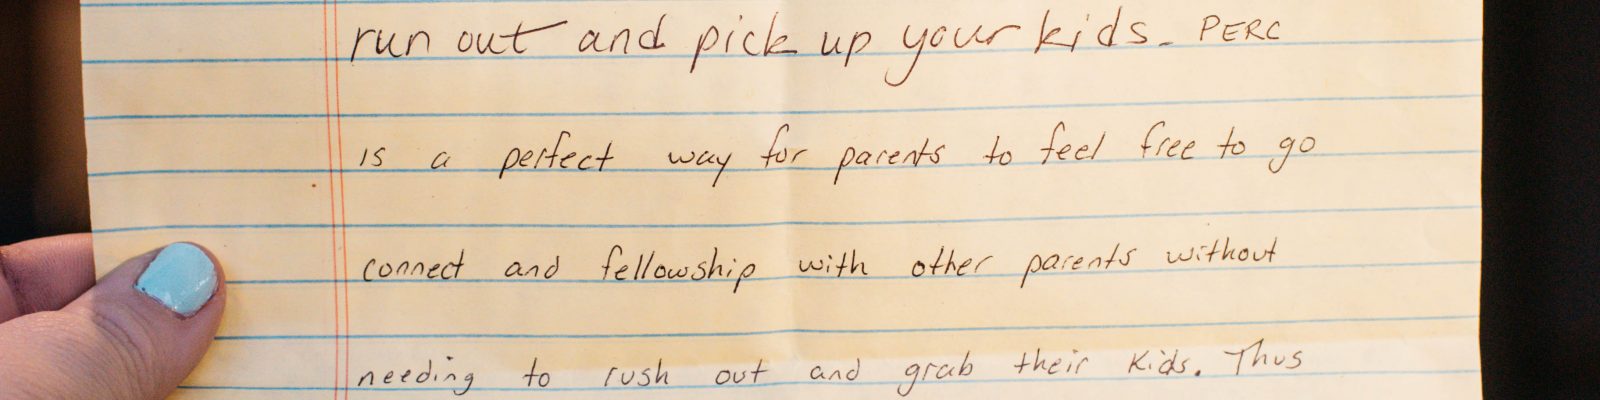 run out and pick up your kids. PERC
is a perfect way for parents to feel free to go
connect and fellowship with other parents without
needing to rush out and grab their kids. Thus